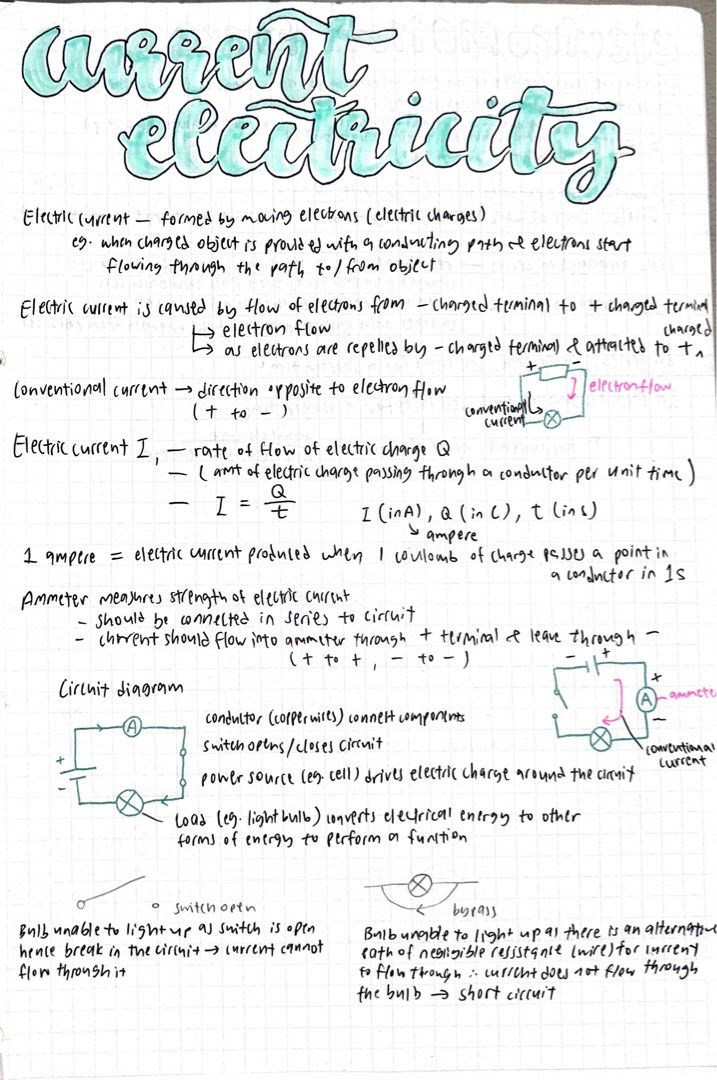 current
electricity
Electric current — formed by moving electrons (electric charges)
eg. when charged object is provided with a conducting path & electrons start
flowing through the path to/from object
Electric current is caused by flow of electrons from - charged terminal to + charged terminal
↳ electron flow
↳ as electrons are repelled by - charged terminal & attracted to + ^ charged
Conventional current → direction opposite to electron flow
(+ to -)
+ -
electron flow
conventional
current
Electric current I, — rate of flow of electric charge Q
— (amt of electric charge passing through a conductor per unit time)
— I = Q/t
I (in A), Q (in C), t (in s)
↘ ampere
1 ampere = electric current produced when 1 coulomb of charge passes a point in
a conductor in 1s
Ammeter measures strength of electric current
- should be connected in series to circuit
- current should flow into ammeter through + terminal & leave through -
(+ to +, - to -)
- +
+
A
ammete
-
conventional
current
Circuit diagram
A
+
-
conductor (copper wires) connect components
switch opens/closes circuit
power source (eg. cell) drives electric charge around the circuit
Load (eg. light bulb) converts electrical energy to other
forms of energy to perform a function
switch open
Bulb unable to light up as switch is open
hence break in the circuit → current cannot
flow through it
bypass
Bulb unable to light up as there is an alternative
path of negligible resistance (wire) for current
to flow though ∴ current does not flow through
the bulb → short circuit